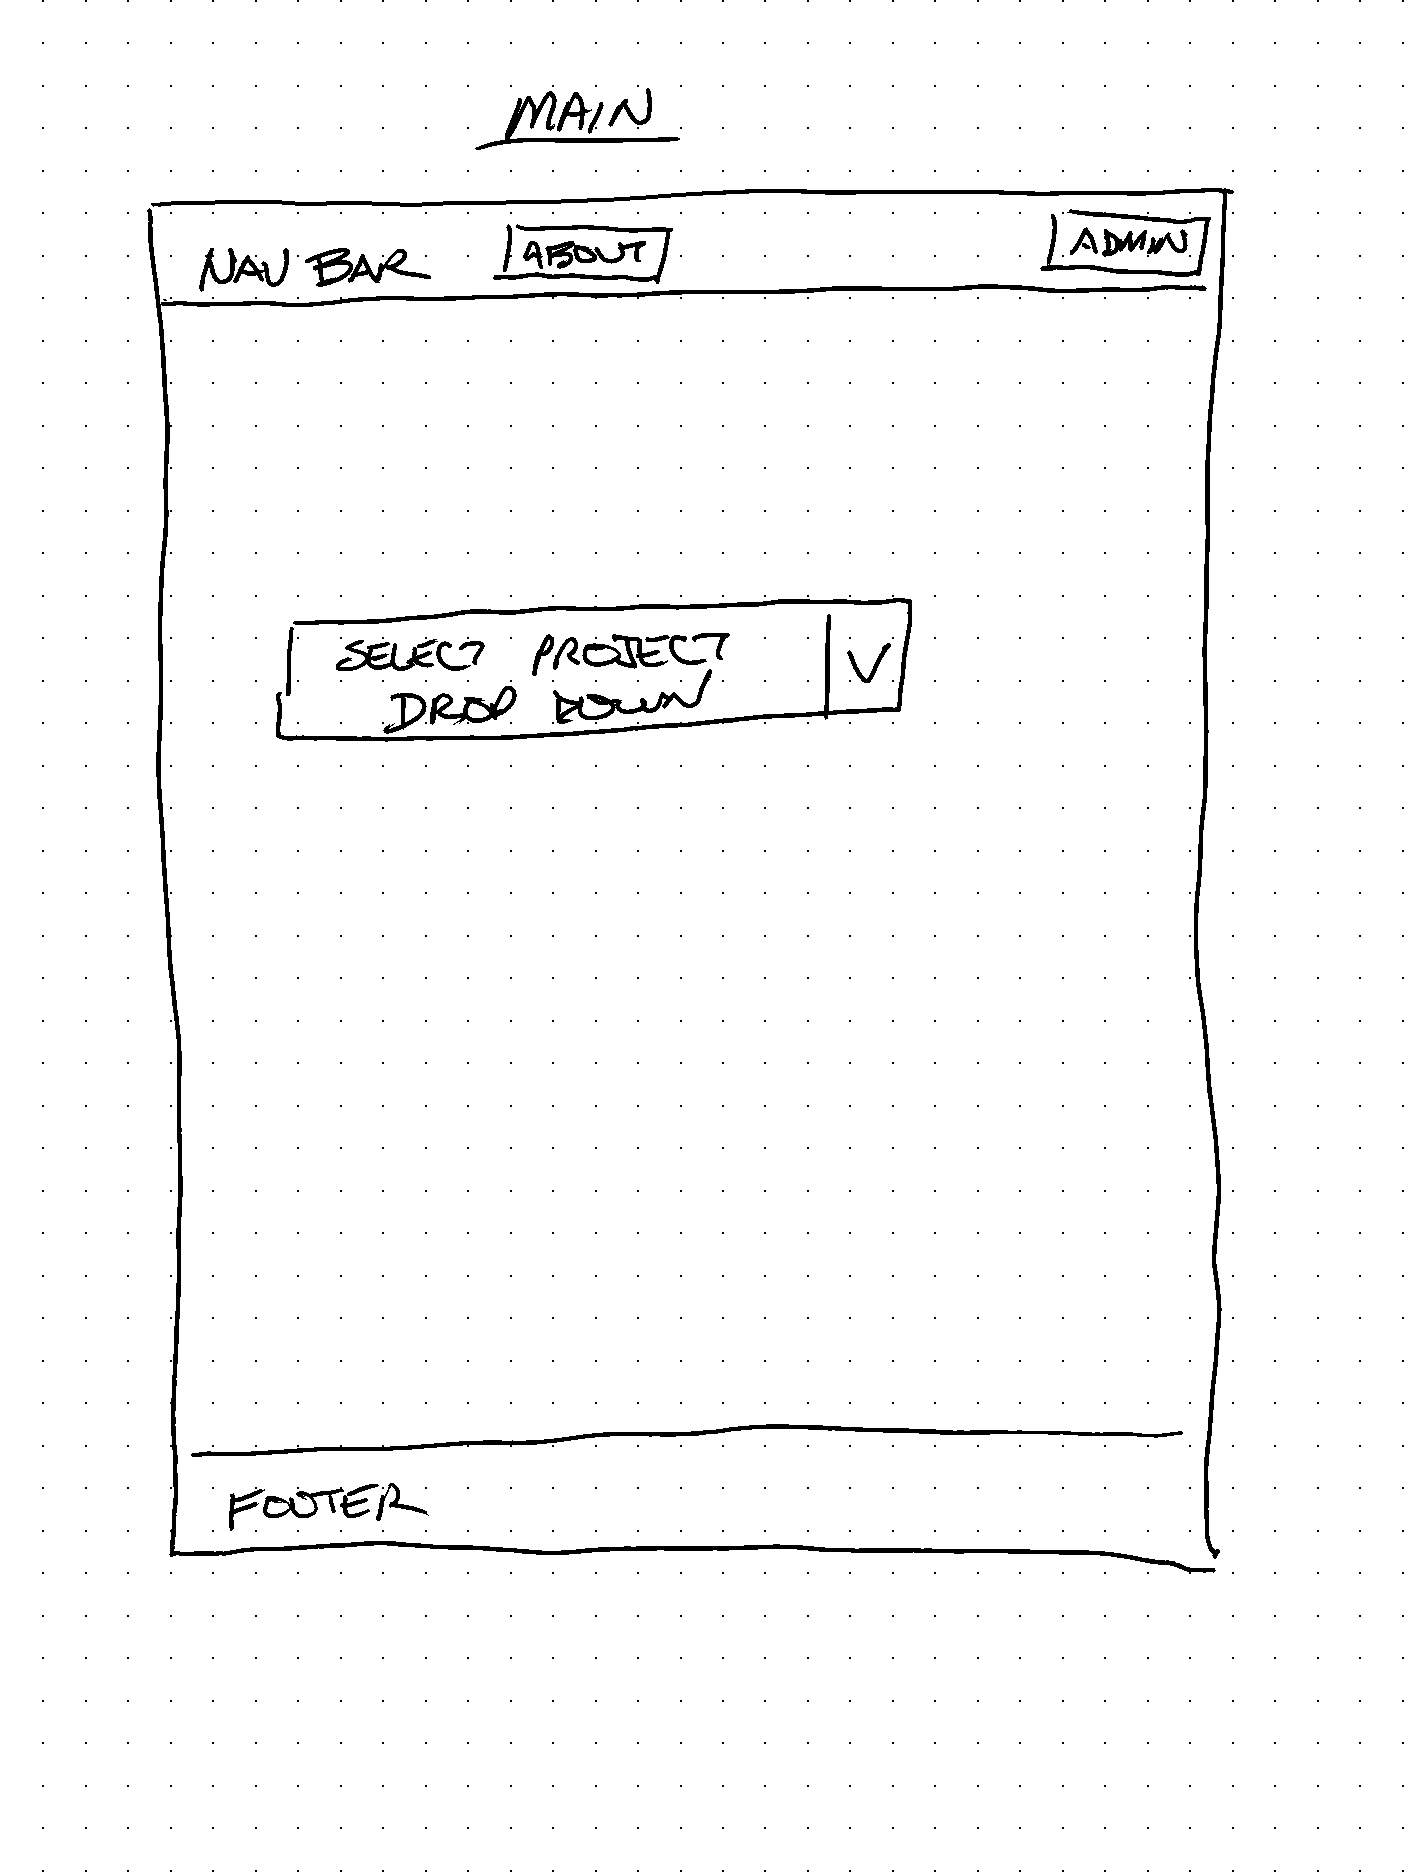 MAIN
NAV BAR
ABOUT
ADMIN
SELECT PROJECT
DROP DOWN
V
FOOTER